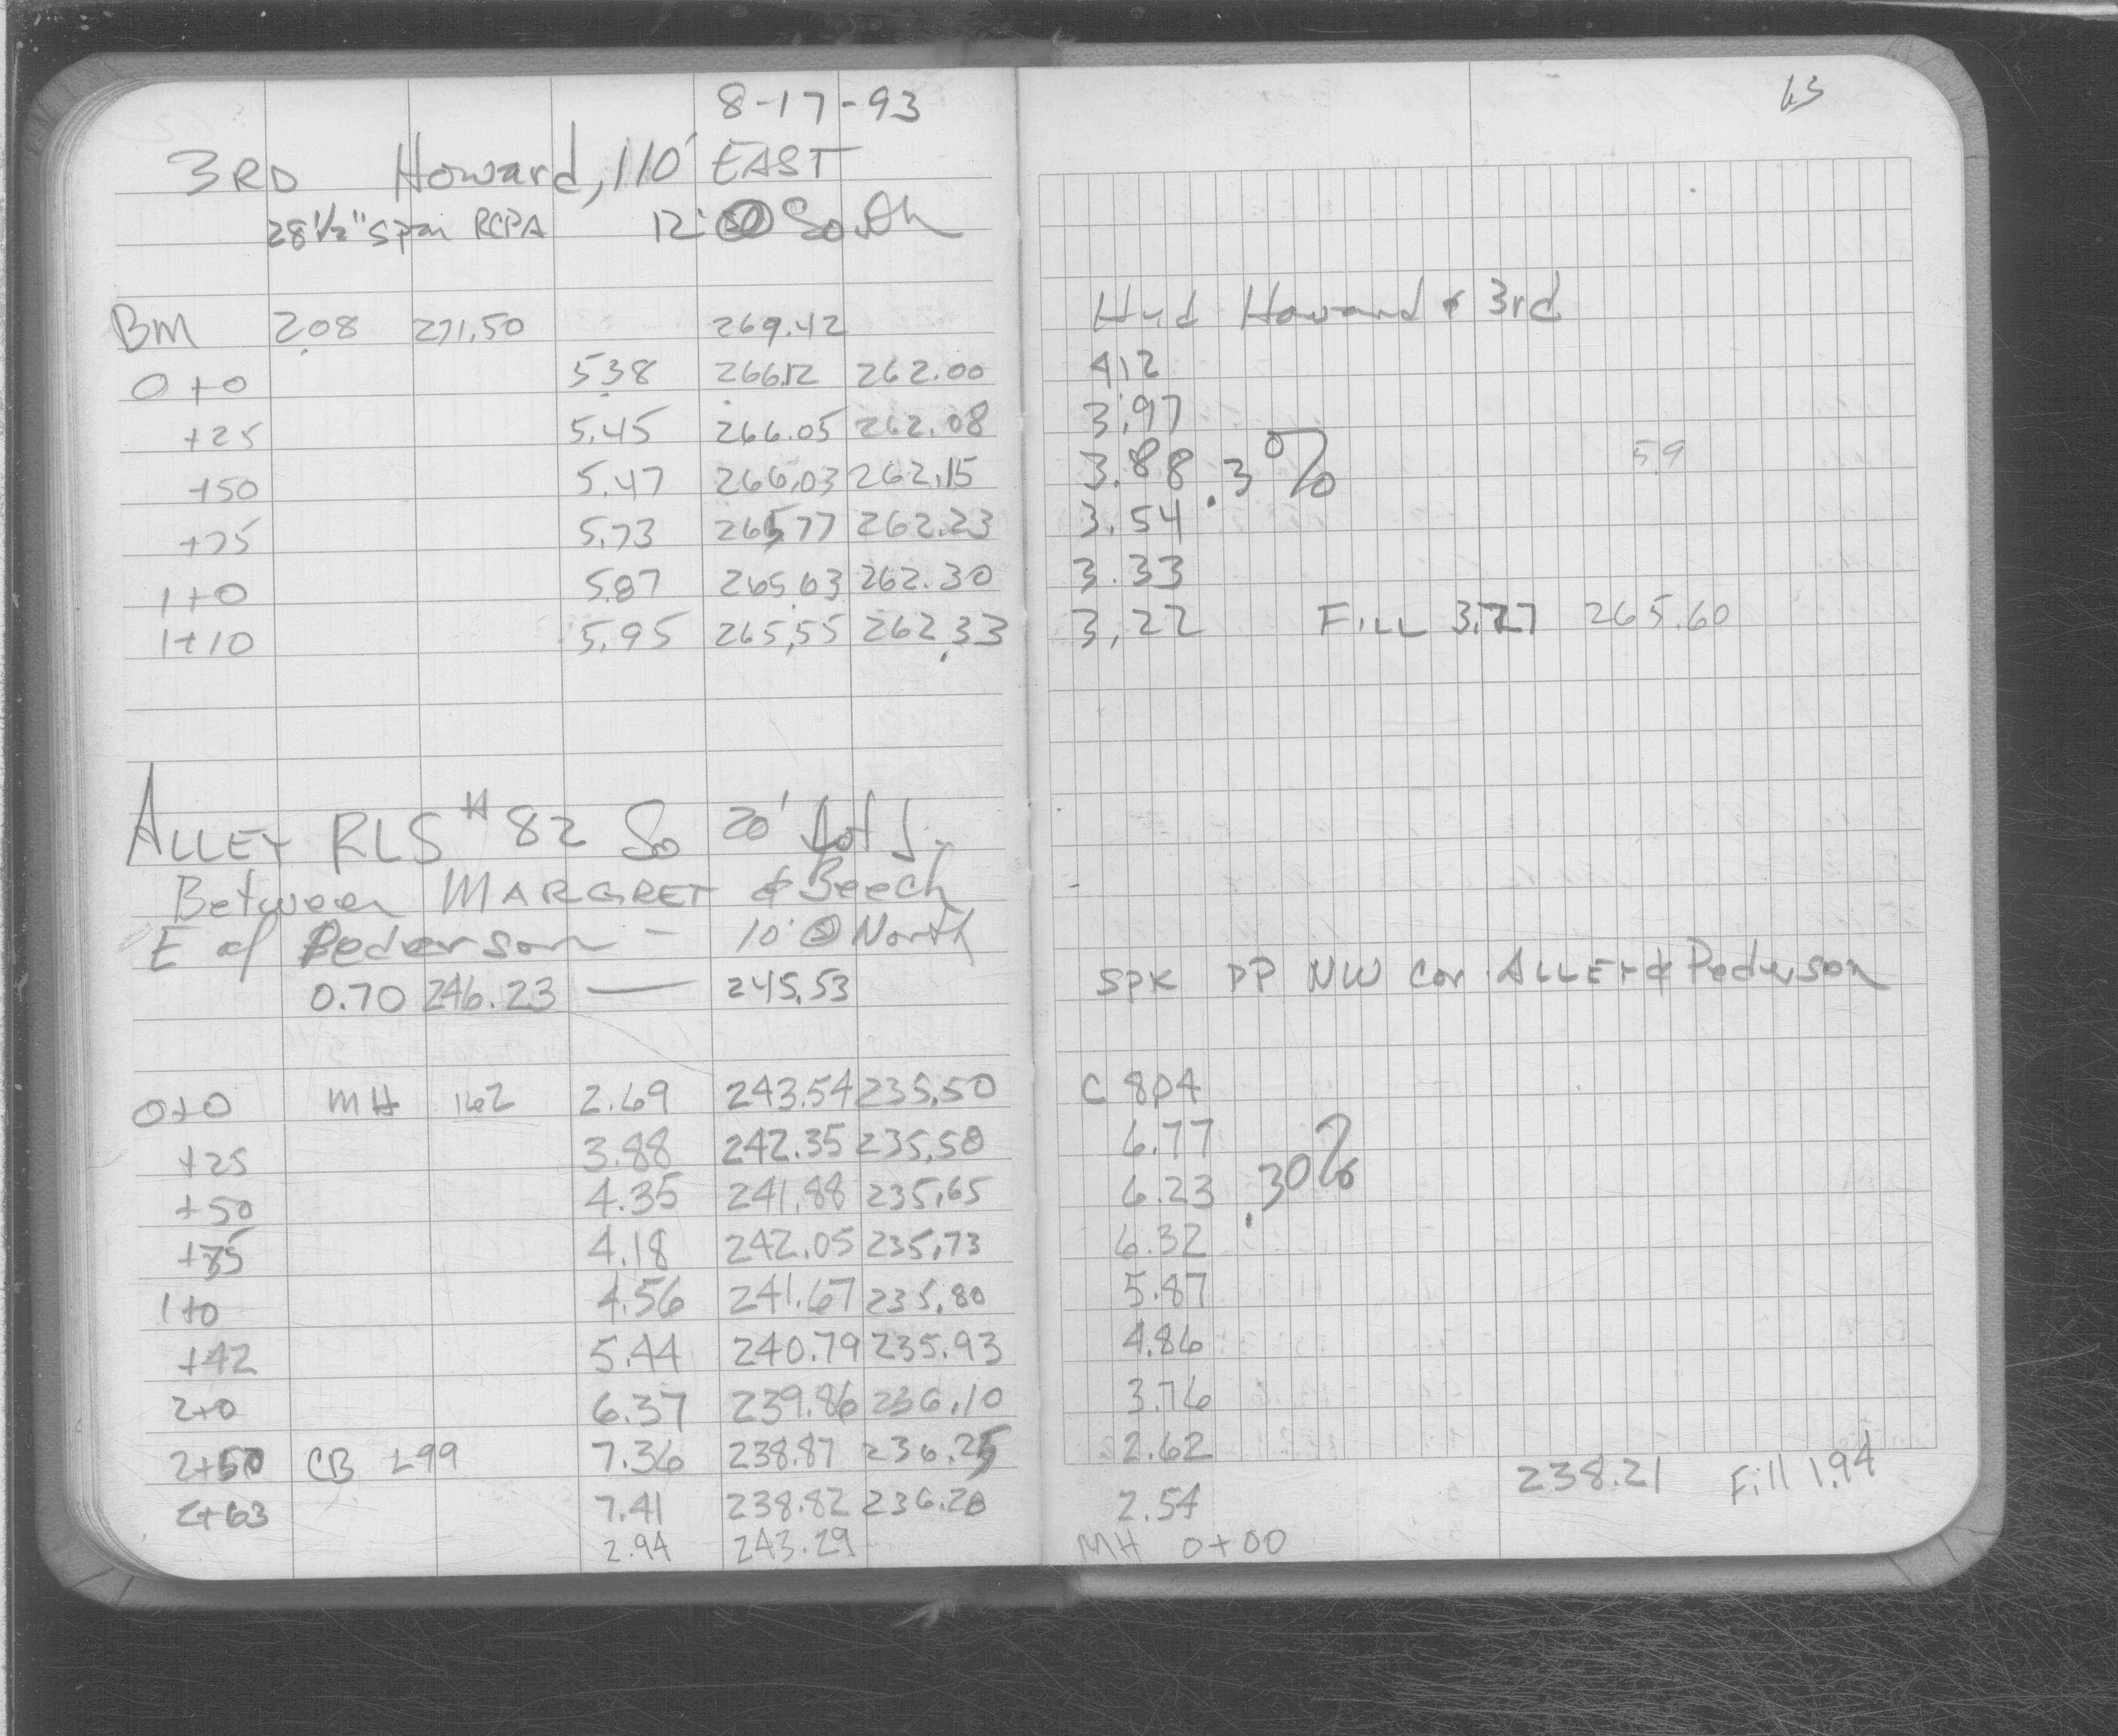 8-17-93
3RD Howard, 110' EAST
28 1/2" span RCPA 12' South
BM 2.08 271.50 269.42
0+0 5.38 266.12 262.00
+25 5.45 266.05 262.08
+50 5.47 266.03 262.15
+75 5.73 265.77 262.23
1+0 5.87 265.63 262.30
1+10 5.95 265.55 262.33
ALLEY RLS #82 So 20' Lot
Between MARGRET & Beech
E of Pederson - 10' North
0.70 246.23 — 245.53
0+0 MH 162 2.69 243.54 235.50
+25 3.88 242.35 235.58
+50 4.35 241.88 235.65
+75 4.18 242.05 235.73
1+0 4.56 241.67 235.80
+42 5.44 240.79 235.93
2+0 6.37 239.86 236.10
2+50 CB 299 7.36 238.87 236.25
2+63 7.41 238.82 236.28
2.94 243.29
63
Hyd Howard & 3rd
4.12
3.97
3.88 .3% 5.9
3.54
3.33
3.22 FILL 3.27 265.60
SPK PP NW Cor ALLEY & Pederson
C 8.04
6.77
6.23 .30%
6.32
5.87
4.86
3.76
2.62
238.21 Fill 1.94
2.54
MH 0+00